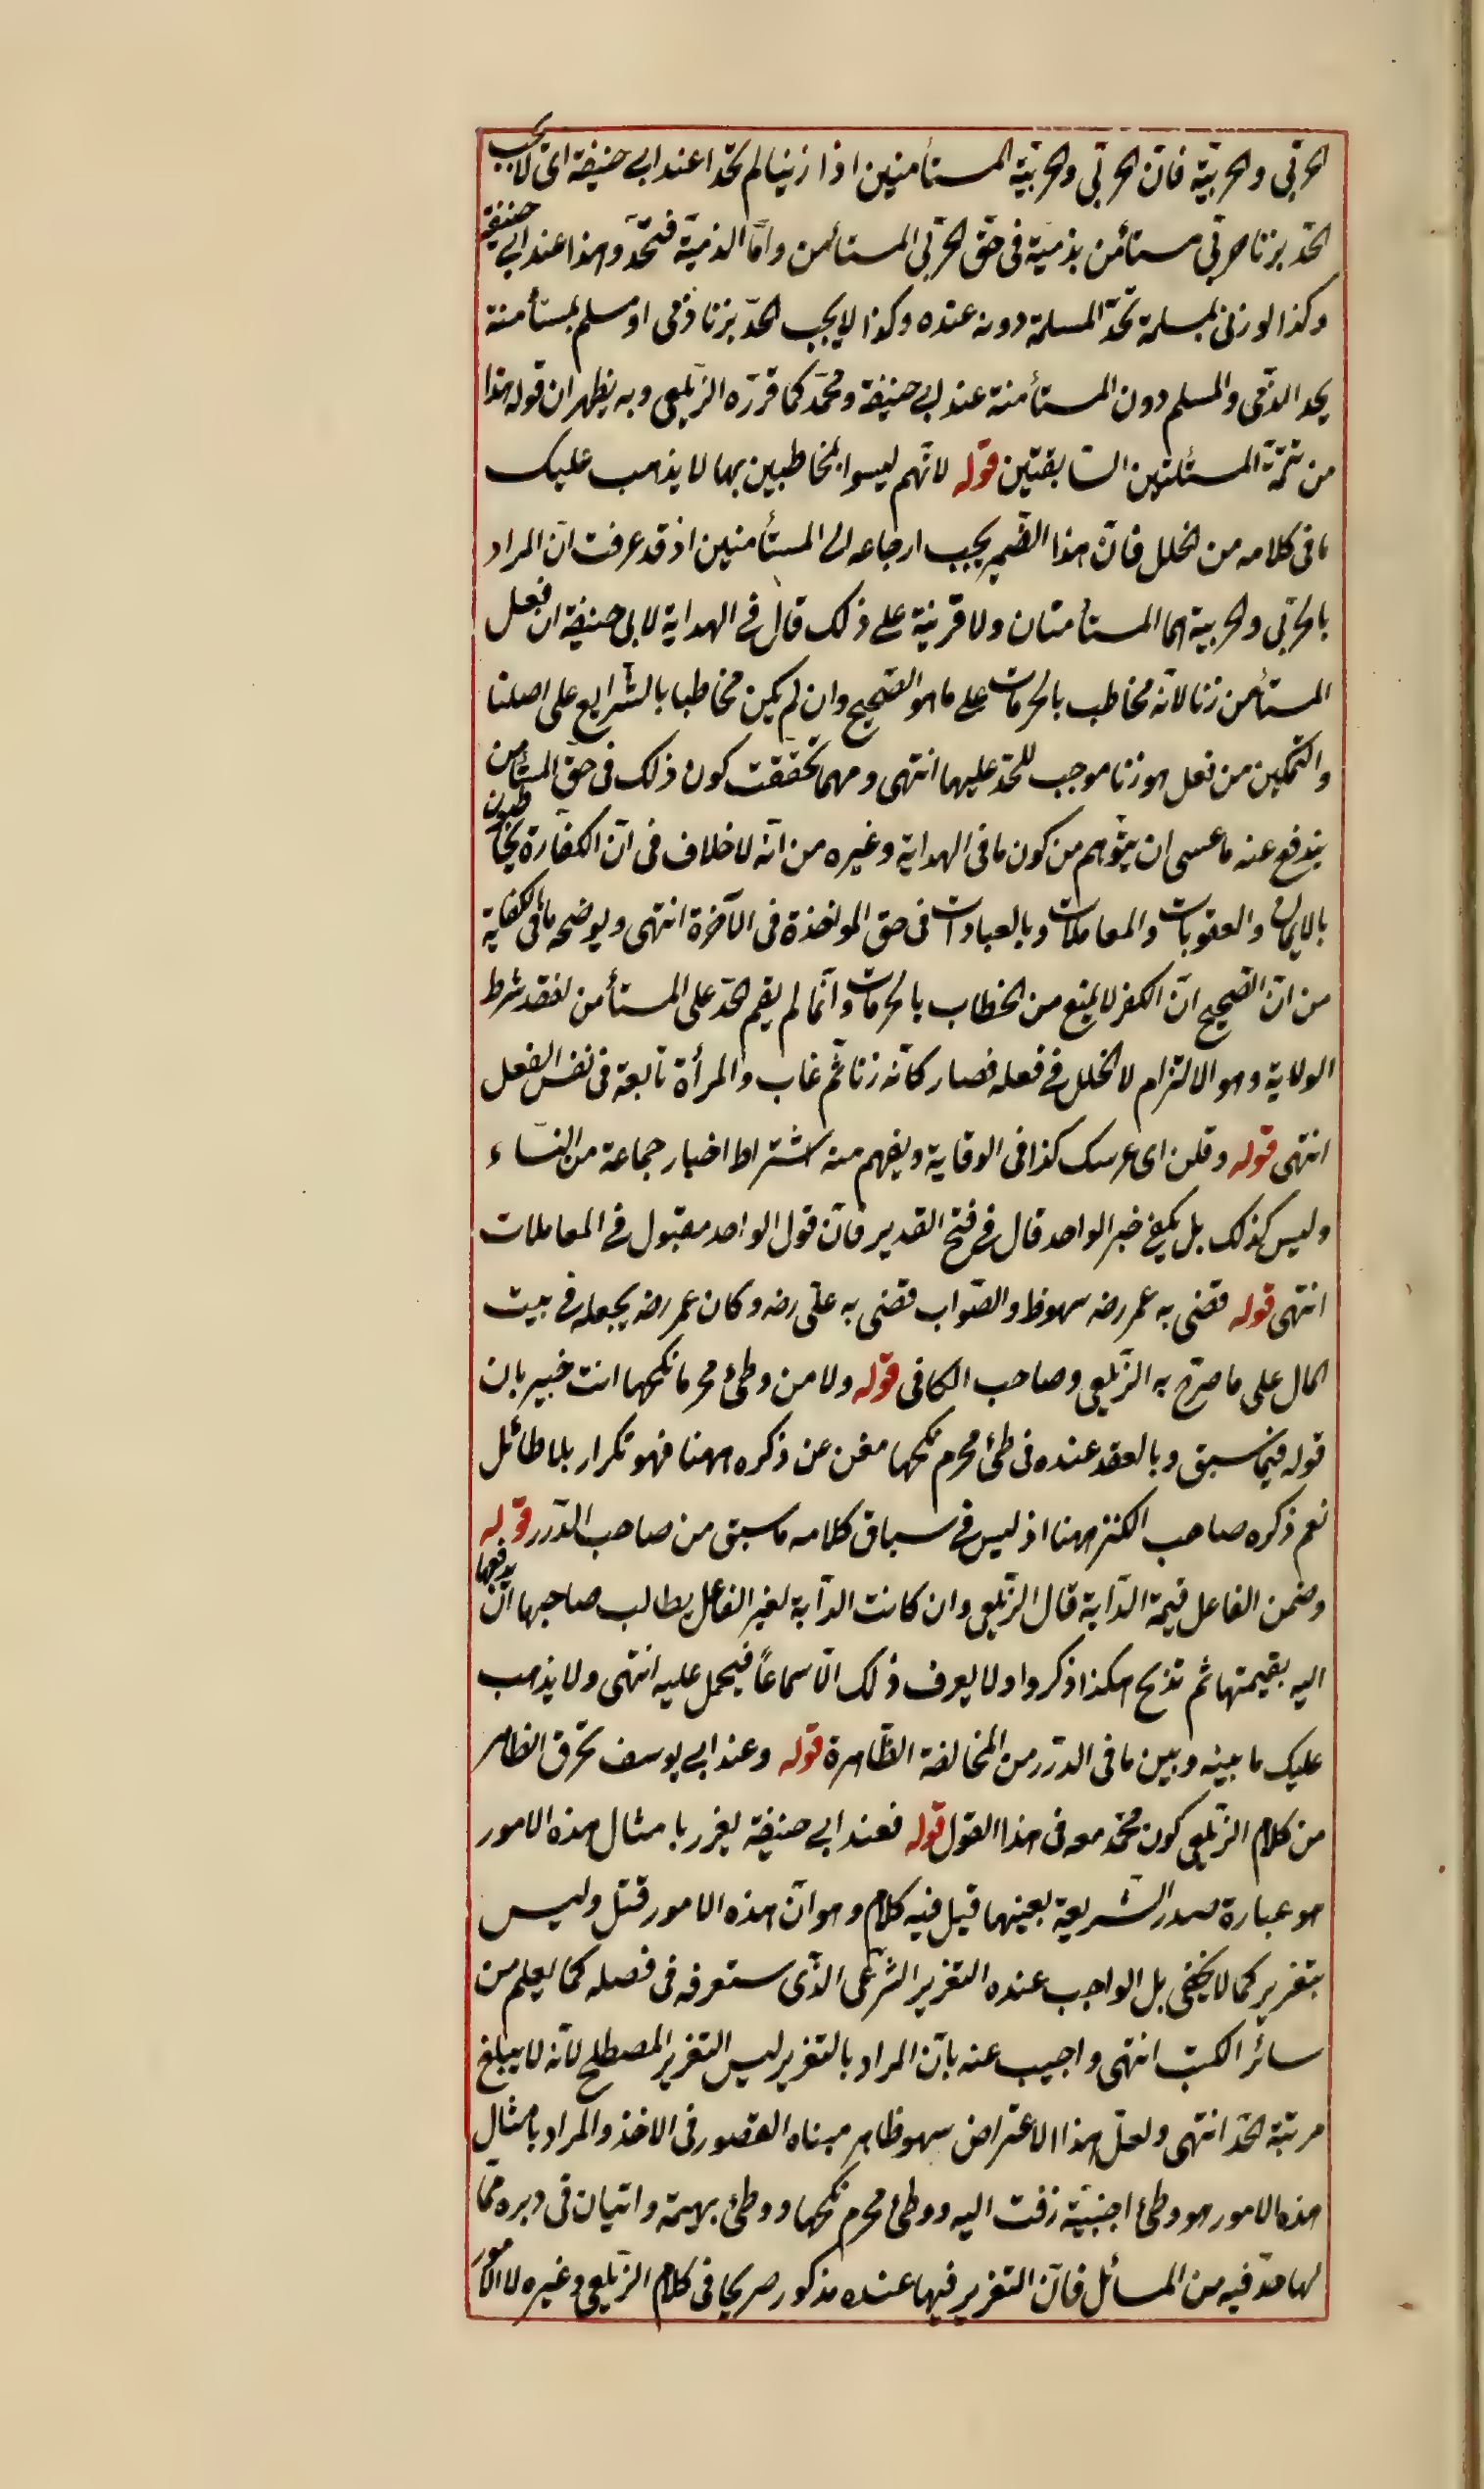 الحربي والحربيّة فانّ الحربي والحربيّة المستأمنين اذا زنيا لم يحدّا عند ابي حنيفة اى لا يجب
الحدّ بزنا حربي مستأمن بذميّة في حقّ الحربي المستأمن وامّا الذميّة فتحدّ وهذا عند ابي حنيفة
وكذا لو زنى بمسلمة تحدّ المسلمة دونه عنده وكذا لا يجب الحدّ بزنا ذمى او مسلم بمستأمنة
يحد الذمى والمسلم دون المستأمنة عند ابي حنيفة ومحمّد كما قرره الزيلعى وبه يظهر ان قوله هذا
من تتمّة المسئلتين السابقتين قوله لانّهم ليسوا بمخاطبين بها لا يذهب عليك
ما في كلامه من الخلل فانّ هذا الضّمير يجب ارجاعه الى المستأمنين اذ قد عرفت انّ المراد
بالحربي والحربية هما المستأمنان ولا قرينة على ذلك قال في الهداية لابي حنيفة ان فعل
المستأمن زنا لانّه مخاطب بالحرمات على ما هو الصّحيح وان لم يكن مخاطبا بالشرايع على اصلنا
والتمكين من فعل هو زنا موجب للحدّ عليها انتهى ومهما تحققت كون ذلك في حق المستأمن
يندفع عنه ما عسى ان يتوّهم من كون ما في الهداية وغيره من انّه لا خلاف في انّ الكفّارة يخاطبون
بالايمان والعقوبات والمعاملات وبالعبادات في حق المؤاخذة في الآخرة انتهى ويوضحه ما في الكفاية
من انّ الصّحيح انّ الكفر لا يمنع من الخطاب بالحرمات وانّما لم يقم الحدّ على المستأمن لفقد شرط
الولاية وهو الالتزام لا لخلل في فعله فصار كانّه زنا ثم غاب والمرأة تابعة في نفس الفعل
انتهى قوله وقلن اى عرسك كذا في الوقاية ويفهم منه اشتراط اخبار جماعة من النّساء
وليس كذلك بل يكفى خبر الواحد قال في فتح القدير فانّ قول الواحد مقبول في المعاملات
انتهى قوله قضى به عمر رضه سهو ظ والصّواب قضى به علىّ رضه وكان عمر رضه يجعله في بيت
المال على ما صرّح به الزّيلعى وصاحب الكافى قوله ولا من وطئ محرما نكحها انت خبير بان
قوله فيما سبق وبالعقد عنده في وطئ محرم نكحها مغن عن ذكره ههنا فهو تكرار بلا طائل
نعم ذكره صاحب الكنز ههنا اذ ليس في سباق كلامه ما سبق من صاحب الدّرر قوله
وضمن الفاعل قيمة الدّابة قال الزّيلعى وان كانت الدّابة لغير الفاعل يطالب صاحبها ان يدفعها
اليه بقيمتها ثم تذبح هكذا ذكروا ولا يعرف ذلك الّا سماعًا فيحمل عليه انتهى ولا يذهب
عليك ما بينه وبين ما في الدرر من المخالفة الظّاهرة قوله وعند ابي يوسف تحرق الظاهر
من كلام الزّيلعى كون محمّد معه في هذا القول قوله فعند ابي حنيفة يعزر بامثال هذه الامور
هو عبارة صدر الشّريعة بعينها قيل فيه كلام وهو انّ هذه الامور قتل وليس
بتعزير كما لا يخفى بل الواجب عنده التعزير الشّرعى الذّى ستعرفه في فصله كما يعلم من
سائر الكتب انتهى واجيب عنه بانّ المراد بالتعزير ليس التعزير المصطلح لانّه لا يبلغ
مرتبة الحدّ انتهى ولعلّ هذا الاعتراض سهو ظاهر مبناه القصور في الاخذ والمراد بامثال
هذه الامور هو وطئ اجنبيّة زفت اليه ووطئ محرم نكحها ووطئ بهيمة واتيان في دبره ممّا
لا حدّ فيه من المسائل فانّ التعزير فيها عنده مذكور صريحا في كلام الزّيلعى وغيره لا الامور